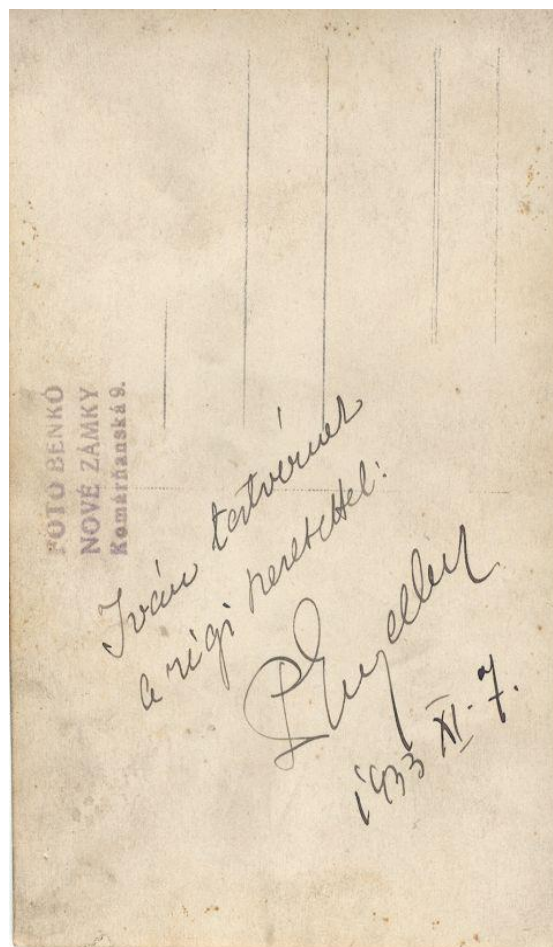 FOTO BENKÓ
NOVÉ ZÁMKY
Komárňanská 9.
Iván testvérnek
a régi szeretettel:
1933 XI. 7.